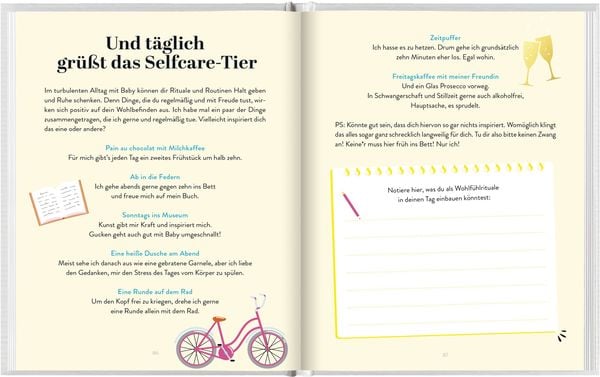 Und täglich
grüßt das Selfcare-Tier
Im turbulenten Alltag mit Baby können dir Rituale und Routinen Halt geben
und Ruhe schenken. Denn Dinge, die du regelmäßig und mit Freude tust, wir-
ken sich positiv auf dein Wohlbefinden aus. Ich habe mal ein paar der Dinge
zusammengetragen, die ich gerne und regelmäßig tue. Vielleicht inspiriert dich
das eine oder andere?
Pain au chocolat mit Milchkaffee
Für mich gibt's jeden Tag ein zweites Frühstück um halb zehn.
Ab in die Federn
Ich gehe abends gerne gegen zehn ins Bett
und freue mich auf mein Buch.
Sonntags ins Museum
Kunst gibt mir Kraft und inspiriert mich.
Gucken geht auch gut mit Baby umgeschnallt!
Eine heiße Dusche am Abend
Meist sehe ich danach aus wie eine gebratene Garnele, aber ich liebe
den Gedanken, mir den Stress des Tages vom Körper zu spülen.
Eine Runde auf dem Rad
Um den Kopf frei zu kriegen, drehe ich gerne
eine Runde allein mit dem Rad.
Zeitpuffer
Ich hasse es zu hetzen. Drum gehe ich grundsätzlich
zehn Minuten eher los. Egal wohin.
Freitagskaffee mit meiner Freundin
Und ein Glas Prosecco vorweg.
In Schwangerschaft und Stillzeit gerne auch alkoholfrei,
Hauptsache, es sprudelt.
PS: Könnte gut sein, dass dich hiervon so gar nichts inspiriert. Womöglich klingt
das alles sogar ganz schrecklich langweilig für dich. Tu dir also bitte keinen Zwang
an! Keine*r muss hier früh ins Bett! Nur ich!
Notiere hier, was du als Wohlfühlrituale
in deinen Tag einbauen könntest: